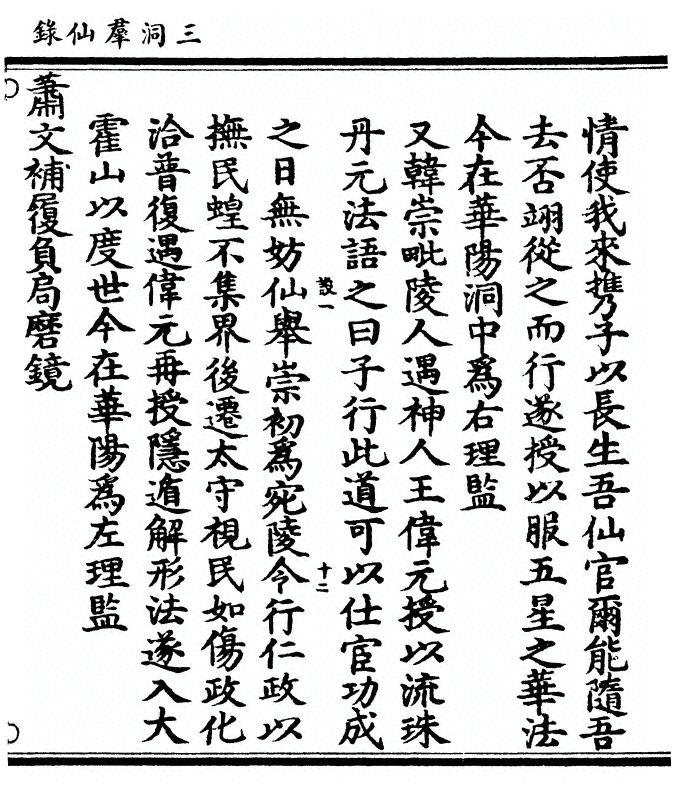 三洞羣仙錄
情使我來攜子以長生吾仙官爾能隨吾
去否翊從之而行遂授以服五星之華法
今在華陽洞中爲右理監
又韓崇毗陵人遇神人王偉元授以流珠
丹元法語之曰子行此道可以仕宦功成
之日無妨仙舉崇初爲宛陵令行仁政以
設一
十二
撫民蝗不集界後遷太守視民如傷政化
洽普復遇偉元再授隱遁解形法遂入大
霍山以度世今在華陽爲左理監
蕭文補履負局磨鏡